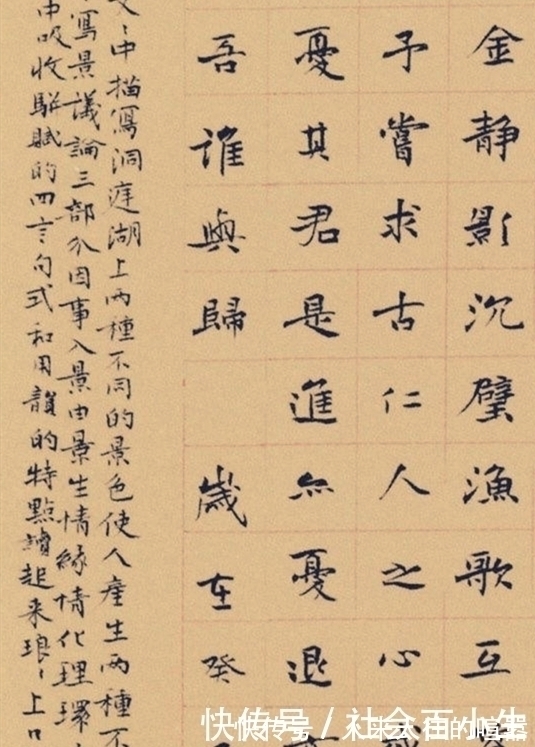 金静影沉璧漁歌互
予嘗求古仁人之心
憂其君是進亦憂退
吾誰與歸 歲在癸
中描寫洞庭湖上兩種不同的景色使人產生兩種不
寫景議論三部分因事入景由景生情緣情化理環
中吸收駢賦的四言句式和用韻的特點讀起来琅々上口
快传号／社会百小生